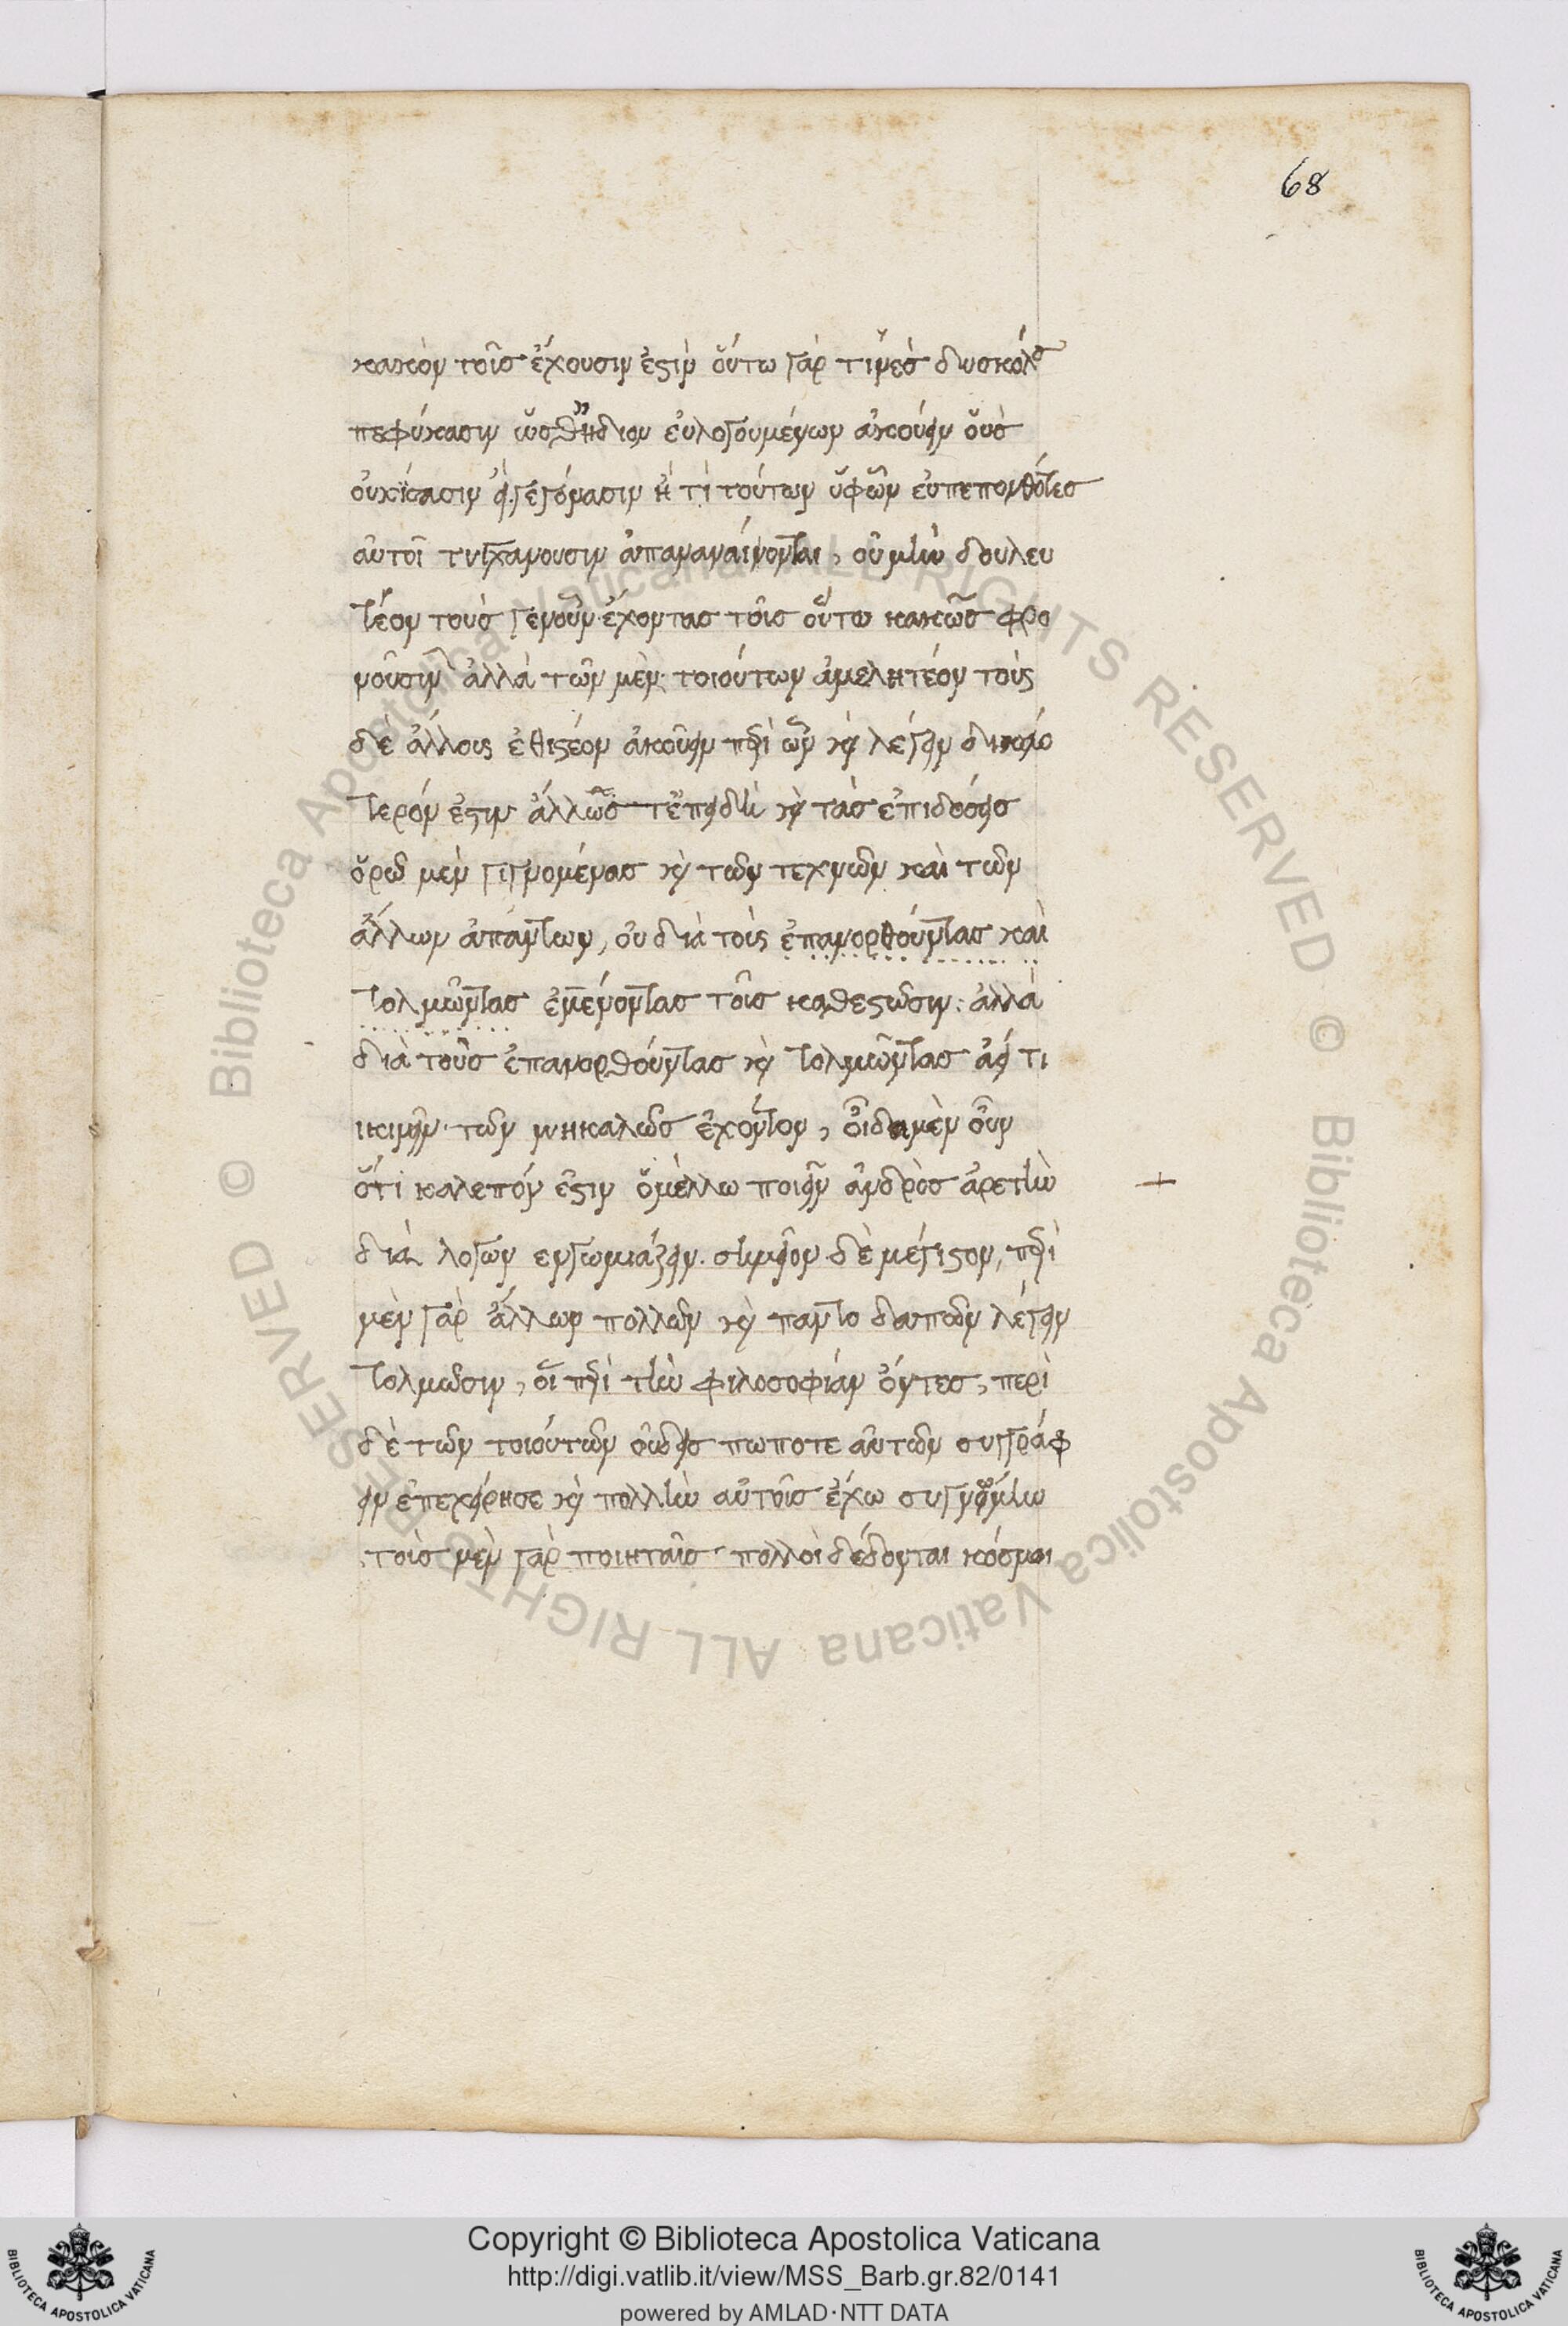 68
κακὸν τοῖς ἔχουσιν ἐστὶν οὕτω γάρ τινες δυσκόλως
πεφύκασιν ὥσθἥδιον εὐλογουμένων ἀκούειν οὓς
οὐκἴσασιν εἰ γεγόνασιν ἤ τὶ τούτων ὑφῶν εὐπεπονθότες
αὐτοὶ τυγχάνουσιν
τέον τοὺς νενοῦν ἔχοντας τοῖς οὕτω κακῶς φρο
νοῦσιν ἀλλὰ τῶν μὲν τοιούτων ἀμελητέον τοὺς
δὲ ἄλλους ἐθιστέον ἀκούειν περὶ ὧν καὶ λέγειν δικαιό
τερόν ἐστιν ἄλλως τἐπειδὴ καὶ τὰς ἐπιδόσεις
ὁρῶ μὲν γιγνομένας καὶ τῶν τεχνῶν καὶ τῶν
ἄλλων ἁπάντων, οὐ διὰ τοὺς ἐπανορθούντας καὶ
τολμῶντας ἐμμένοντας τοῖς καθεστῶσιν: ἀλλὰ
διὰ τοὺς ἐπανορθούντας καὶ τολμῶντας ἀεί τι
κινεῖν τῶν μηκαλῶς ἐχόντον, οἶδα μὲν οὖν
ὅτι καλεπόν ἐστιν ὃμέλλω ποιεῖν ἀνδρὸς ἀρετὴν
διὰ λόγων ἐγγωμιάζειν. σημεῖον δὲ μέγιστον, περὶ
μὲν γὰρ ἄλλων πολλῶν καὶ παντοδαπῶν λέγειν
τολμῶσιν, οἱ περὶ τὴν φιλοσοφίαν ὄντες, περὶ
δὲ τῶν τοιούτων οὐδεὶς πωποτε αὐτῶν συγγράφ
ειν ἐπεχείρησε καὶ πολλὴν αὐτοῖς ἔχω συγγνώμην
τοῖς μὲν γὰρ ποιηταῖς πολλοὶ δέδονται κόσμοι
Copyright © Biblioteca Apostolica Vaticana
http://digi.vatlib.it/view/MSS_Barb.gr.82/0141
powered by AMLAD·NTT DATA
BIBLIOTECA APOSTOLICA VATICANA
BIBLIOTECA APOSTOLICA VATICANA
© Biblioteca Apostolica Vaticana ALL RIGHTS RESERVED © Biblioteca Apostolica Vaticana ALL RIGHTS RESERVED